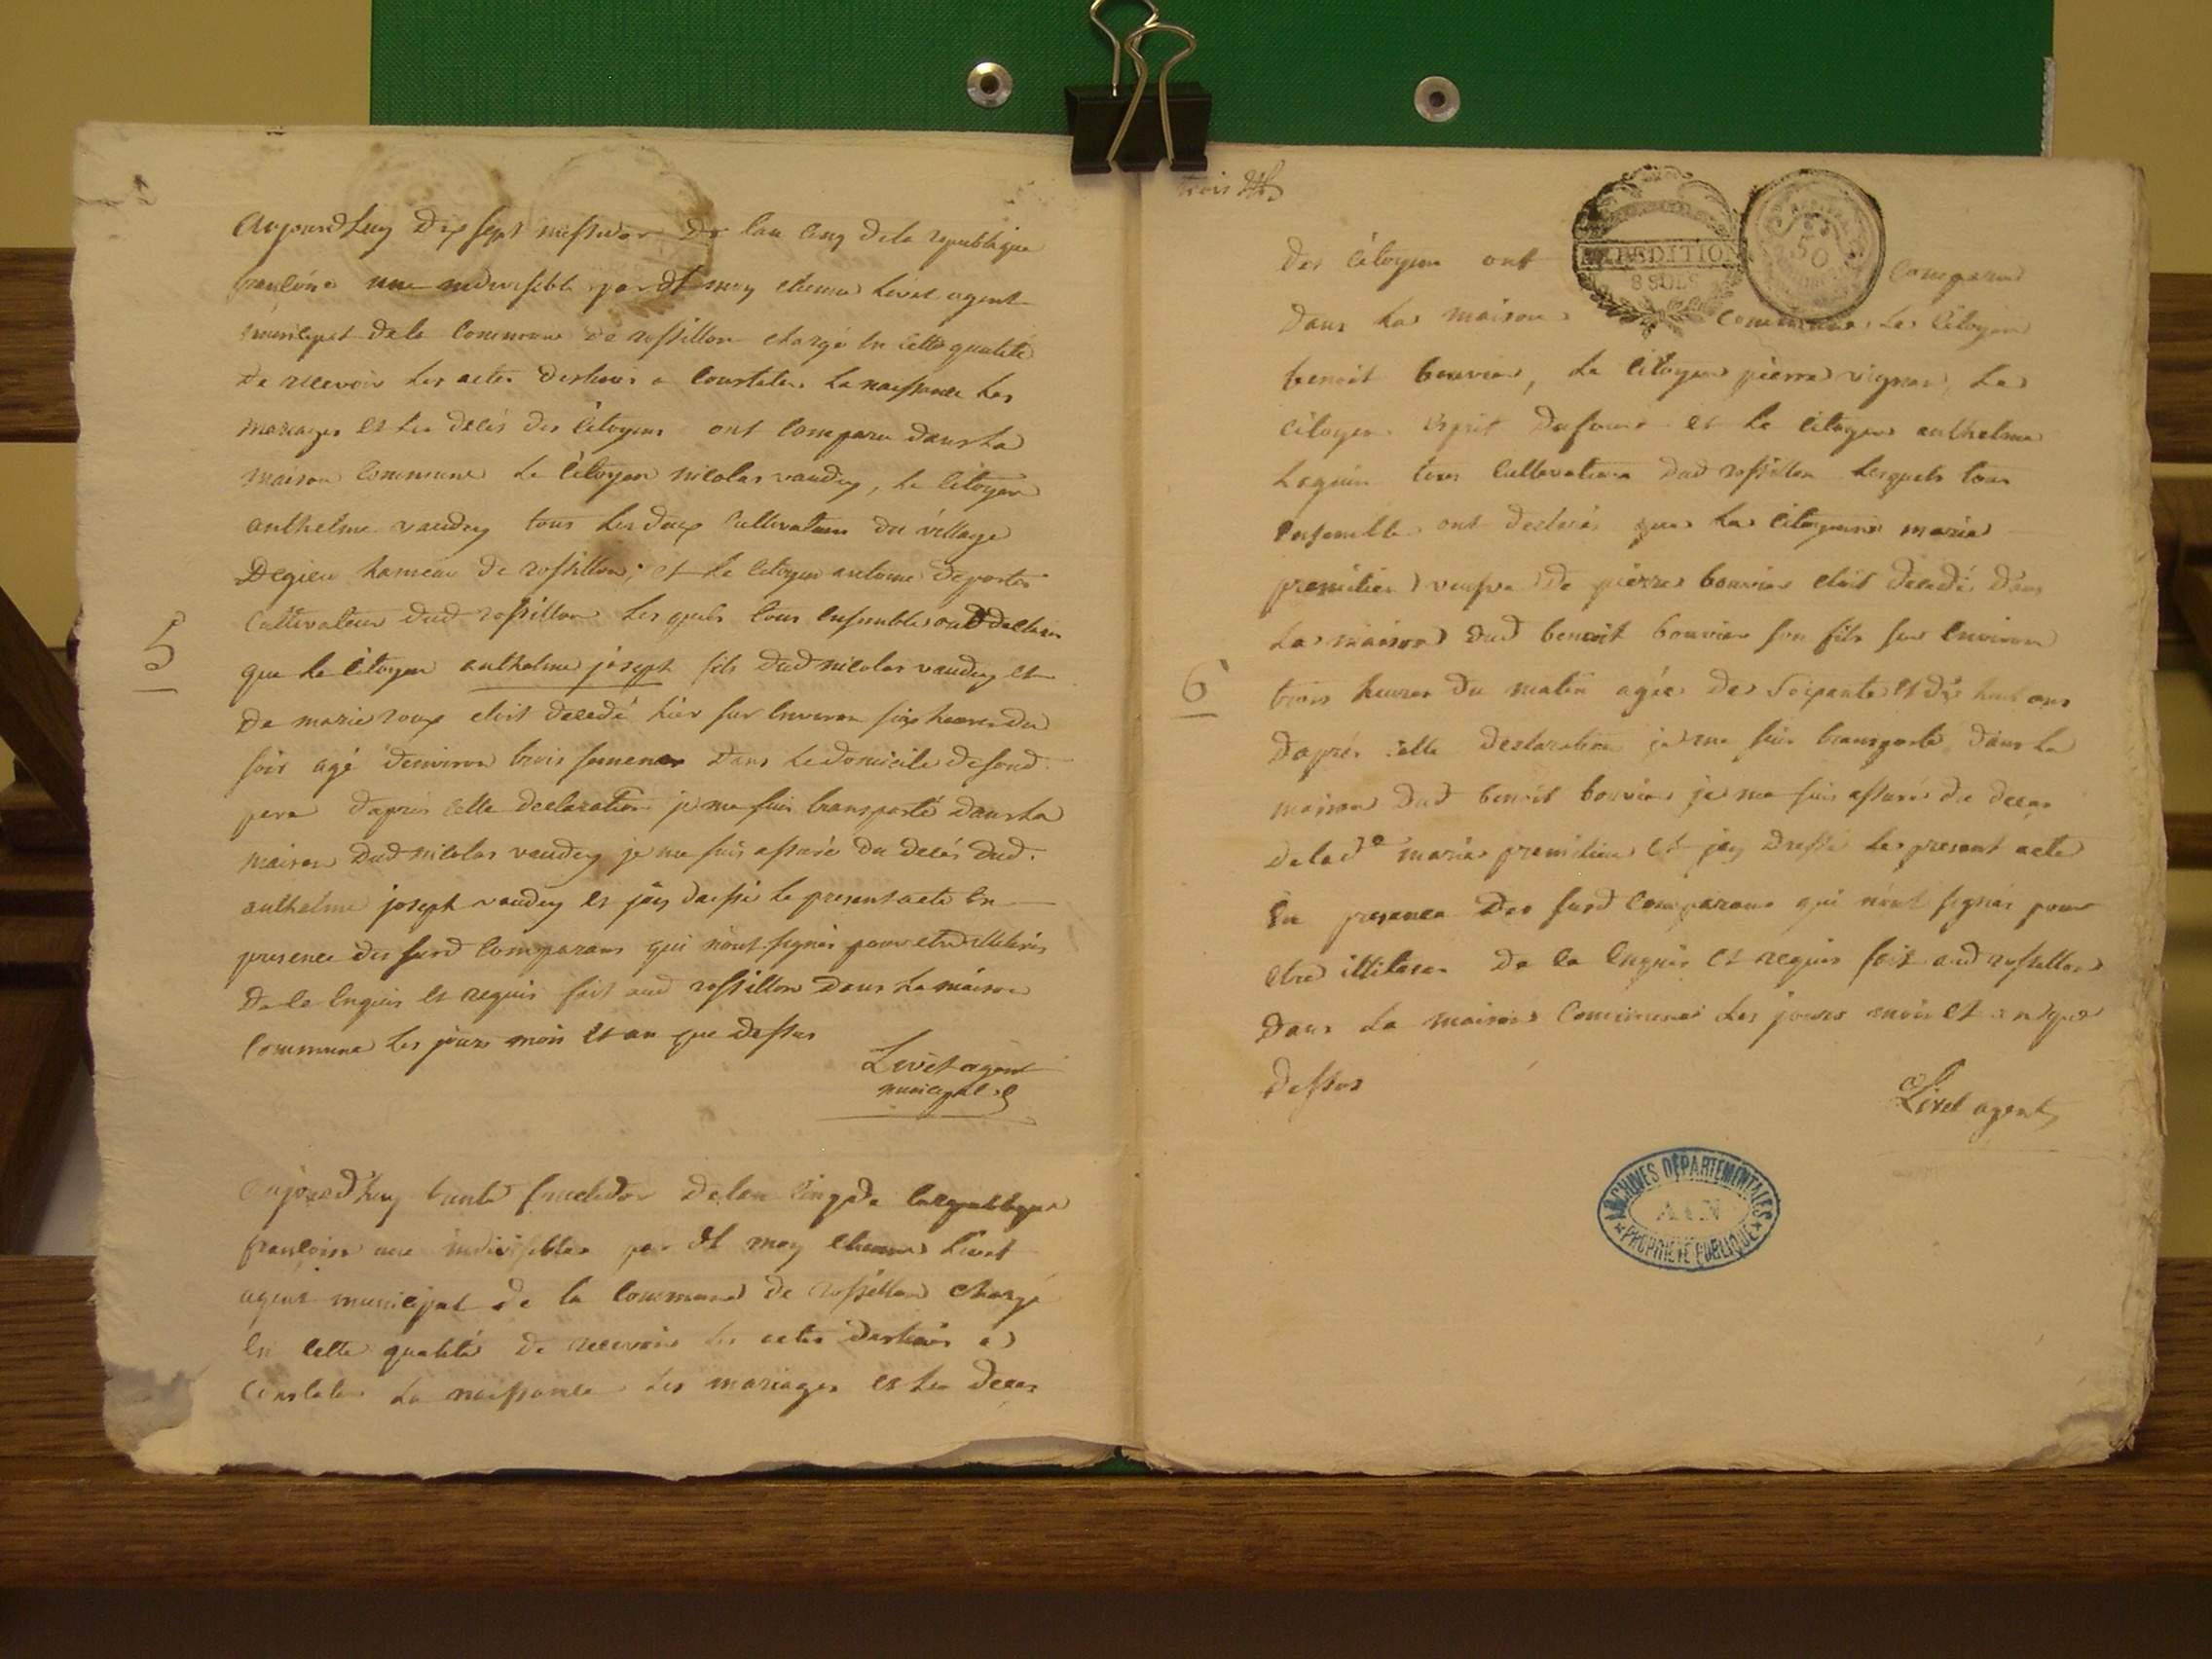 Aujourdhuy dix sept messidor de lan cinq de la republique
francóise une indivisible par dt moy etienne Livet agent
municipal de la Commune de rossillon chargé en cette qualité
de recevoir les actes destinés a constater la naissance les
mariages et les decés des citoyens ont comparu dans la
maison commune le citoyen nicolas vaudey, le citoyen
anthelme vaudey tous les deux cultivateurs du village
Degieu hameau de rossillon, et le citoyen antoine deportes
Cultivateur dud rossillon les quels tous ensemble ont declarés
5
que le citoyen anthelme joseph fils dud nicolas vaudey et
de marie roux etoit decedé hier sur environ six heures du
soir agé denviron trois semenes dans le domicile de sond.
pere daprés cette declaration je me suis transporté dans la
maison dud nicolas vaudey je me suis assuré du decés dud.
anthelme joseph vaudey et jäy dressé le present acte en
presence des susd comparans qui nónt signés pour etre illiterés
de ce enquis et requis fait aud rossillon dans la maison
commune les jours mois et an que dessus
Livet agent
municipal
Aujourdhuy trente fructidor de lan cinq de la republique
francóise une indivisible par dt moy etienne Livet
agent municipal de la commune de rossillon chargé
en cette qualité de recevoir les actes destinés a
constater la naissance les mariages et les deces
trois
EXPEDITION
8 SOLS
50
des citoyens ont comparus
dans la maison commune le citoyen
benoit bouvier, le citoyen pierre vignes le
citoyen esprit dufour et le citoyen anthelme
Laguin tous cultivateurs dud rossillon lesquels tous
ensemble ont declarés que la citoyenne marie
premilieu veufve de pierre bouvier etoit decedé dans
la maison dud benoit bouvier son fils sur environ
6
trois heures du matin agée de soixante et dix huit ans
daprés cette declaration je me suis transporté dans la
maison dud benoit bouvier je me suis assuré du deces
de lade marie premilieu et jay dressé le present acte
en presence des susd comparans qui nónt signés pour
etre illiterés de ce enquis et requis fait aud rossillon
dans la maison commune les jours mois et an que
dessus
Livet agent
ARCHIVES DÉPARTEMENTALES
AIN
PROPRIÉTÉ PUBLIQUE